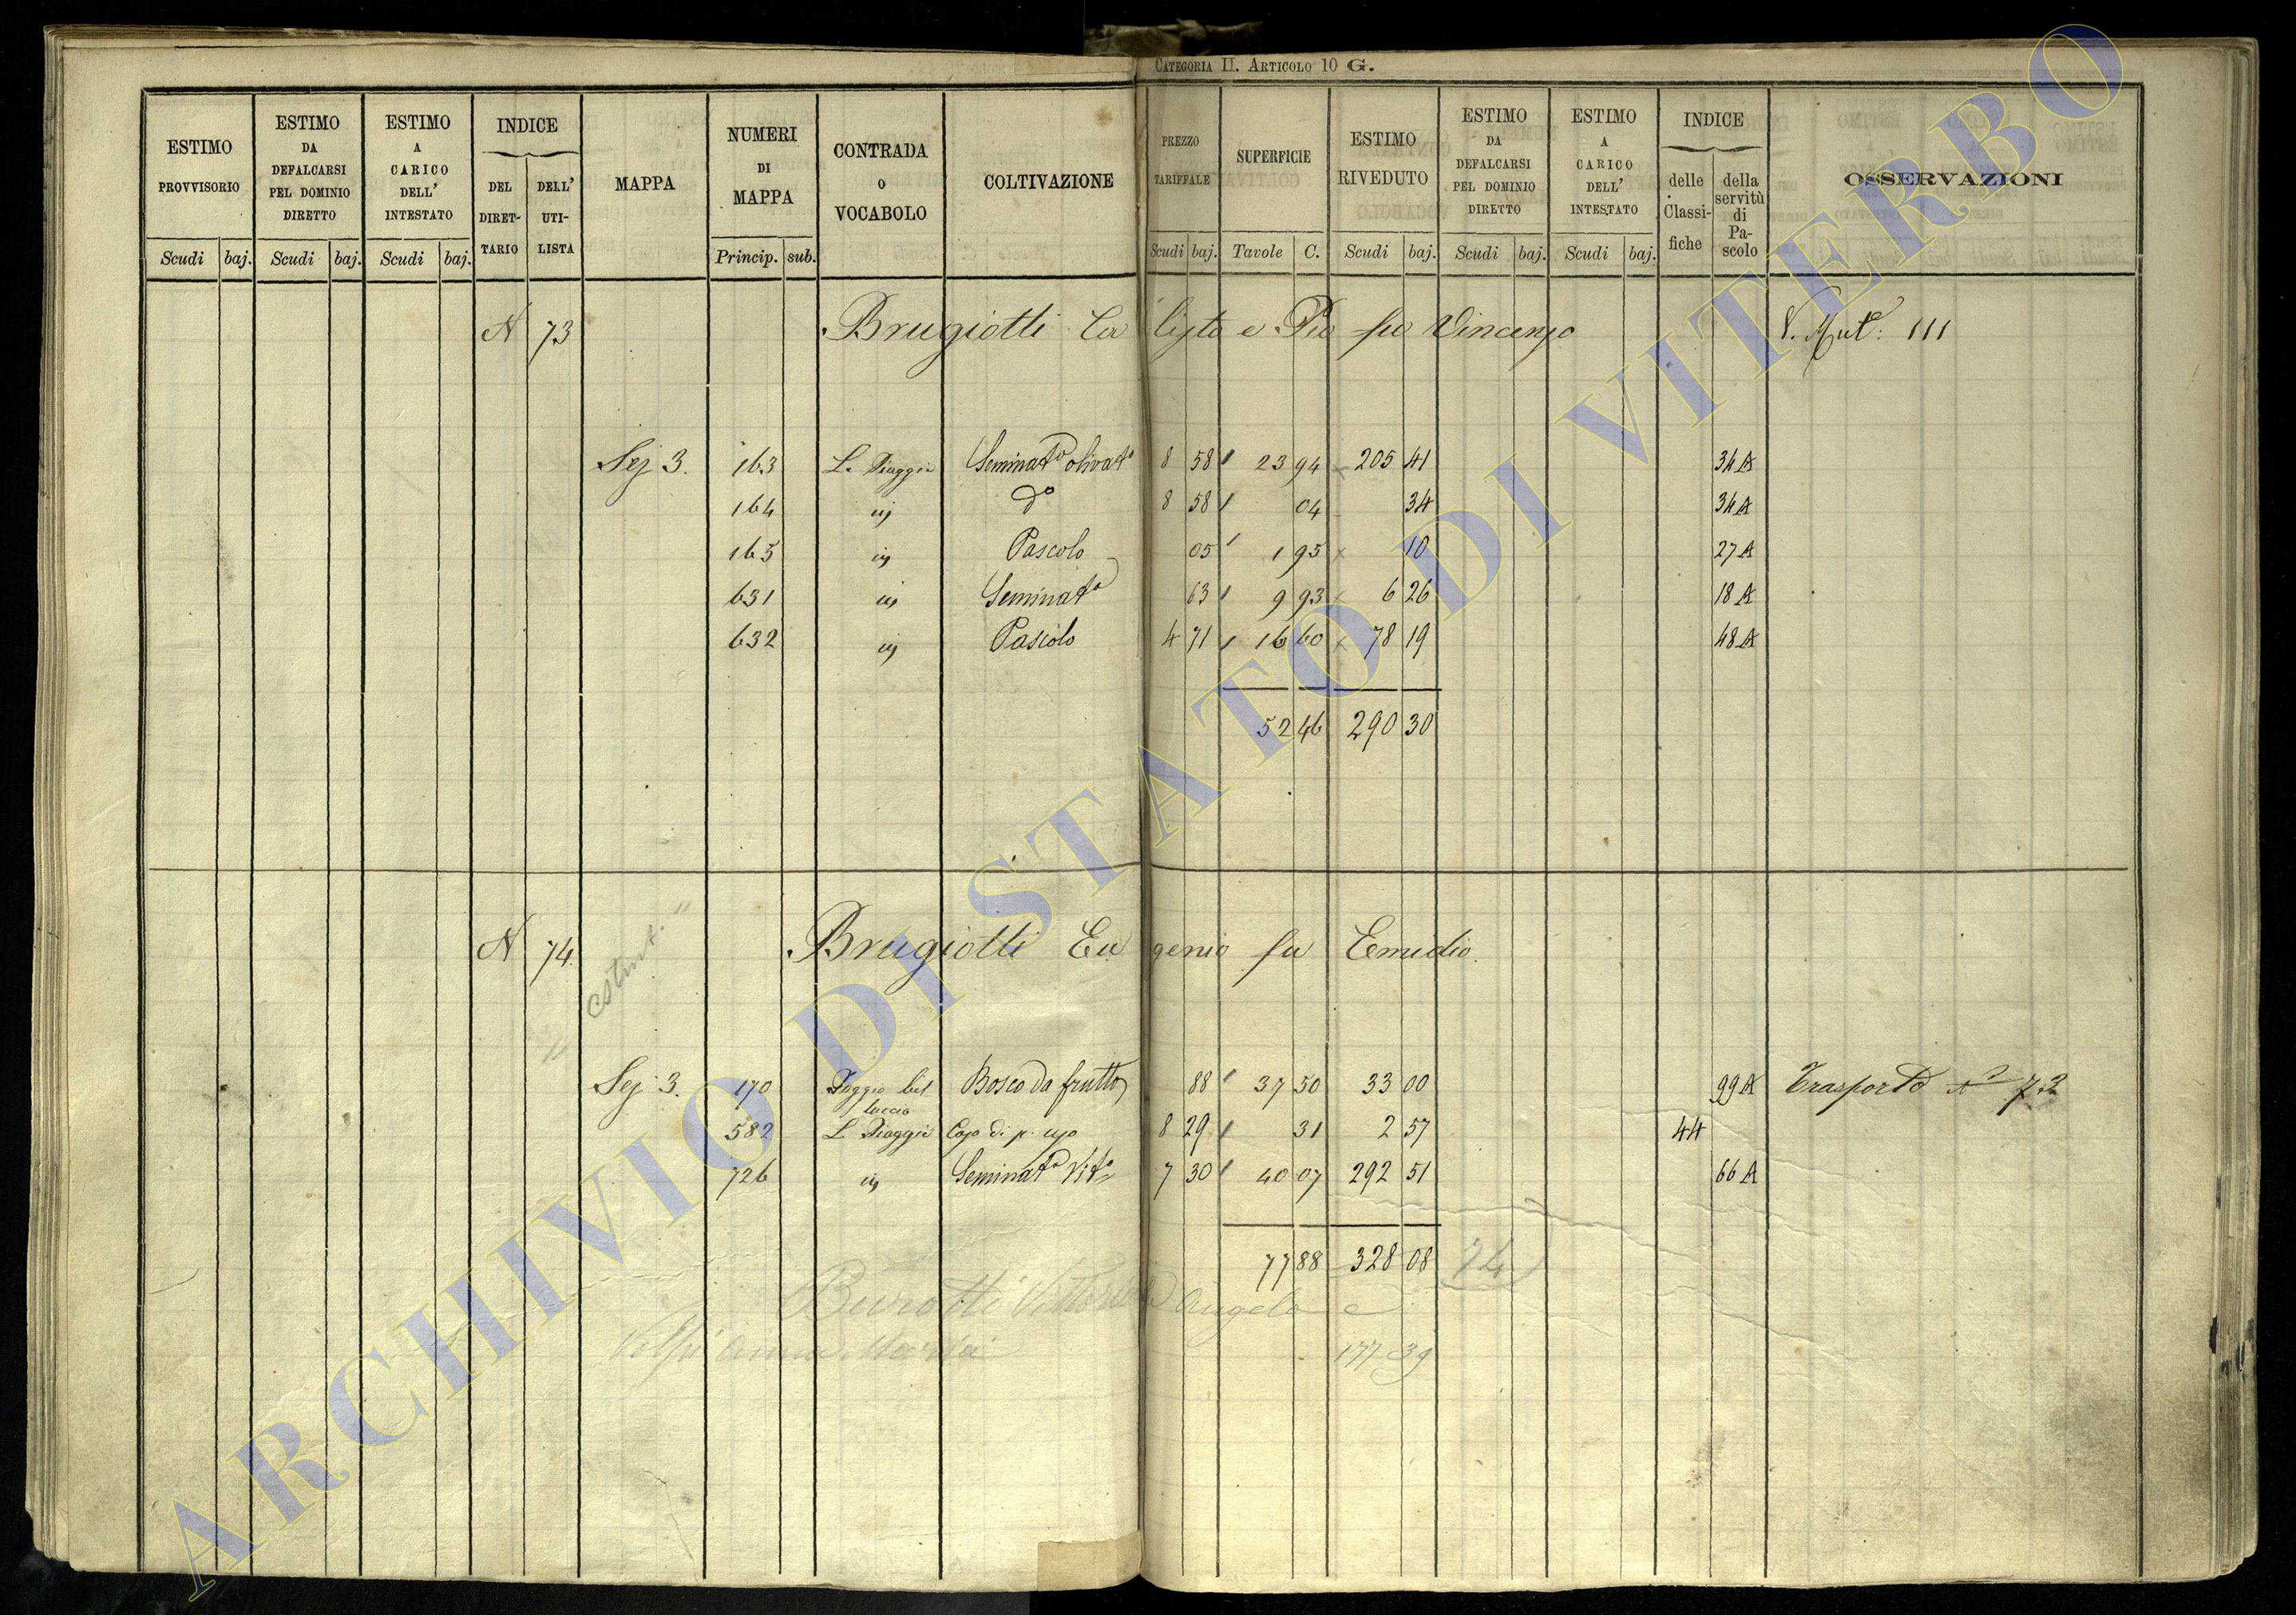 CATEGORIA II. ARTICOLO 10 G.
ESTIMO PROVVISORIO | ESTIMO DA DEFALCARSI PEL DOMINIO DIRETTO | ESTIMO A CARICO DELL' INTESTATO | INDICE DEL DIRETTARIO | DELL' UTILISTA | MAPPA | NUMERI DI MAPPA | CONTRADA O VOCABOLO | COLTIVAZIONE | PREZZO TARIFFALE | SUPERFICIE | ESTIMO RIVEDUTO | ESTIMO DA DEFALCARSI PEL DOMINIO DIRETTO | ESTIMO A CARICO DELL' INTESTATO | INDICE delle Classifiche | della servitù di Pascolo | OSSERVAZIONI
Scudi baj. Scudi baj. Scudi baj. Princip. sub. Scudi baj. Tavole C. Scudi baj. Scudi baj. Scudi baj.
N 73 Brugiotti Calisto e Pio fu Vincenzo V. Mut: 111
Sez 3. 163 Le Piaggie Seminato olivato 8 58 23 94 205 41 34 A
164 d° 8 58 04 34 34 A
165 Pascolo 05 1 95 10 27 A
631 Seminato 63 9 93 6 26 18 A
632 Pascolo 4 71 16 60 78 19 48 A
52 46 290 30
N 74 Brugiotti Eugenio fu Emidio.
Sez 3. 170 Poggio bel Bosco da frutto 88 37 50 33 00 99 A Trasporto N° 73
luccio
582 Le Piaggie Casa di p. uso 8 29 31 2 57 44
726 Seminato Vito 7 30 40 07 292 51 66 A
77 88 328 08 74
Vittorio Angelo e
Anna Maria 177 39
ARCHIVIO DI STATO DI VITERBO